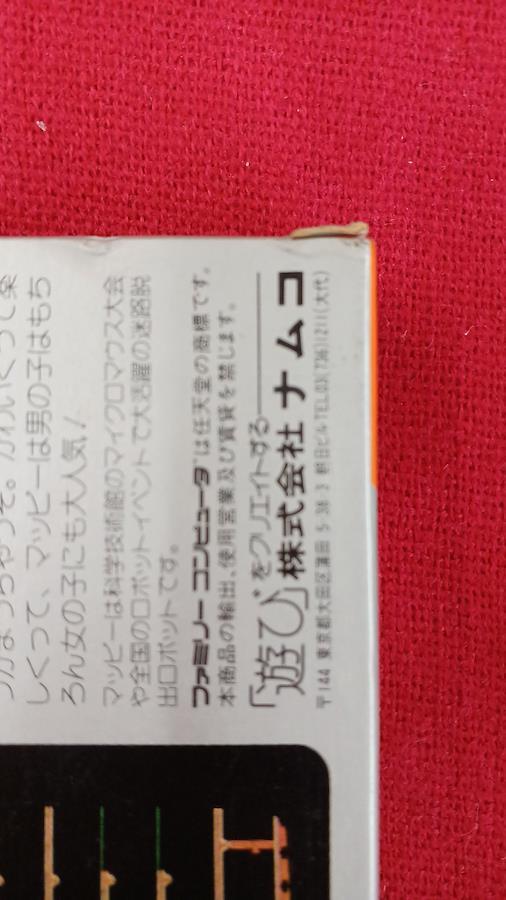 しくって、マッピーは男の子はもち
ろん女の子にも大人気！
マッピーは科学技術館のマイクロマウス大会
や全国のロボットイベントで大活躍の迷路脱
出ロボットです。
ファミリーコンピュータ™は任天堂の商標です。
本商品の輸出、使用営業及び賃貸を禁じます。
「遊び」をクリエイトする
株式会社ナムコ
〒144 東京都大田区蒲田 5-38-3 朝日ビル TEL.03(736)1211(大代)